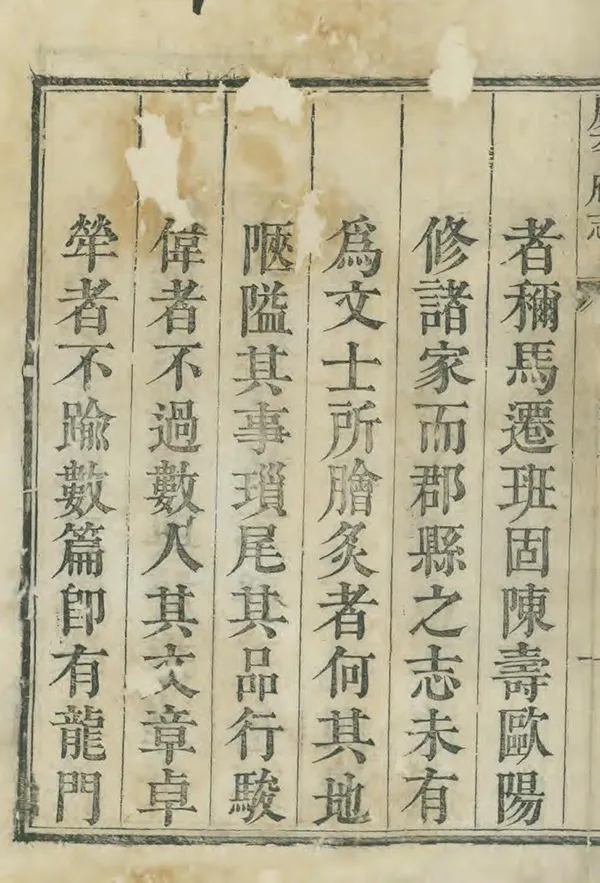 府志
者穪馬遷班固陳壽歐陽
修諸家而郡縣之志未有
爲文士所膾炙者何其地
隘其事瑣尾其品行駿
偉者不過數人其文章卓
犖者不踰數篇卽有龍門